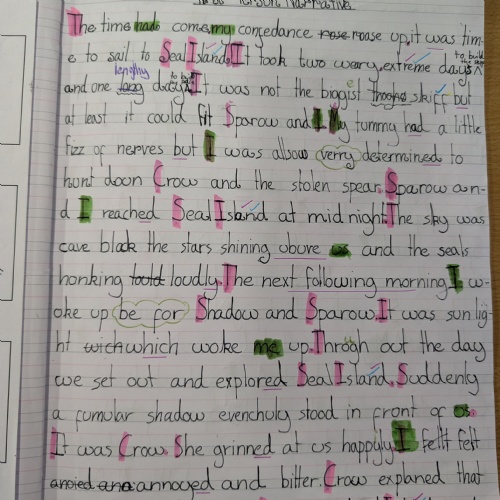 Person Narrative
The time had come, my confedance rose roase up, it was tim-
e to sail to Seal Island. It took two weary, extreme days to build
and one long lengthy day. It was not the biggist skiff but
at least it could fit Sparow and I. My tummy had a little
fizz of nerves but I was allsow verry determined to
hunt down Crow and the stolen spear. Sparow an-
d I reached Seal Island at mid night. The sky was
cave black the stars shining above us and the seals
honking loudly. The next following morning I w-
oke up be for Shadow and Sparow. It was sun lig-
ht wich which woke me up. Throgh out the day
we set out and explored Seal Island. Suddenly
a fumular shadow evenchuly stood in front of us.
It was Crow. She grinned at us happily. I fellt felt
anoied and annoyed and bitter. Crow explaned that